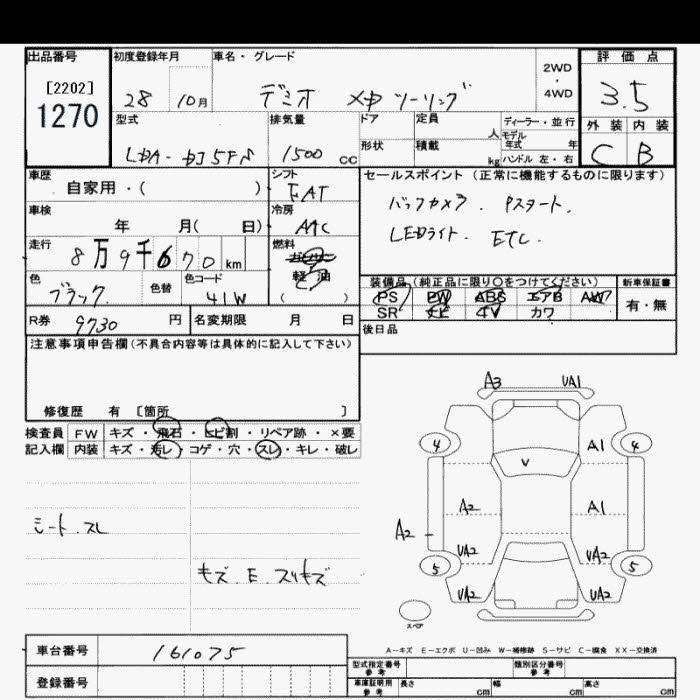 出品番号
[2202]
1270
初度登録年月
28 10月
車名・グレード
デミオ ツーリング
2WD
・
4WD
評価点
3.5
外装 内装
C B
型式
LDA-DJ5FS
排気量
1500 CC
ドア
定員
人
形状
積載
kg
ディーラー・並行
モデル
年式 年
ハンドル 左・右
車歴
自家用・( )
シフト
FAT
セールスポイント(正常に機能するものに限ります)
バックカメラ. Pスタート.
LEDライト. ETC.
車検
年 月( 日)
冷房
AAC
走行
8万9千670 km
燃料
軽油
( )
色
ブラック
色替
色コード
41W
装備品(純正品に限り○をつけてください)
PS PW ABS エアB AW
SR ナビ TV カワ
新車保証書
有・無
R券 9730 円
名変期限 月 日
後日品
注意事項申告欄(不具合内容等は具体的に記入して下さい)
修復歴 有 〔箇所 〕
検査員
記入欄
FW キズ・飛石・ヒビ割・リペア跡・×要
内装 キズ・汚レ・コゲ・穴・スレ・キレ・破レ
シート.スレ
キズ.E.スリキズ
A3 UA1
4 A1 4
V
A2 A1
A2
UA2 UA2
5 5
UA2 UA2
スペア
A-キズ E-エクボ U-凹み W-補修跡 S-サビ C-腐食 XX-交換済
車台番号 161075
登録番号
型式指定番号
参考
類別区分番号
参考
車庫証明用
参考
長さ cm
幅 cm
高さ cm